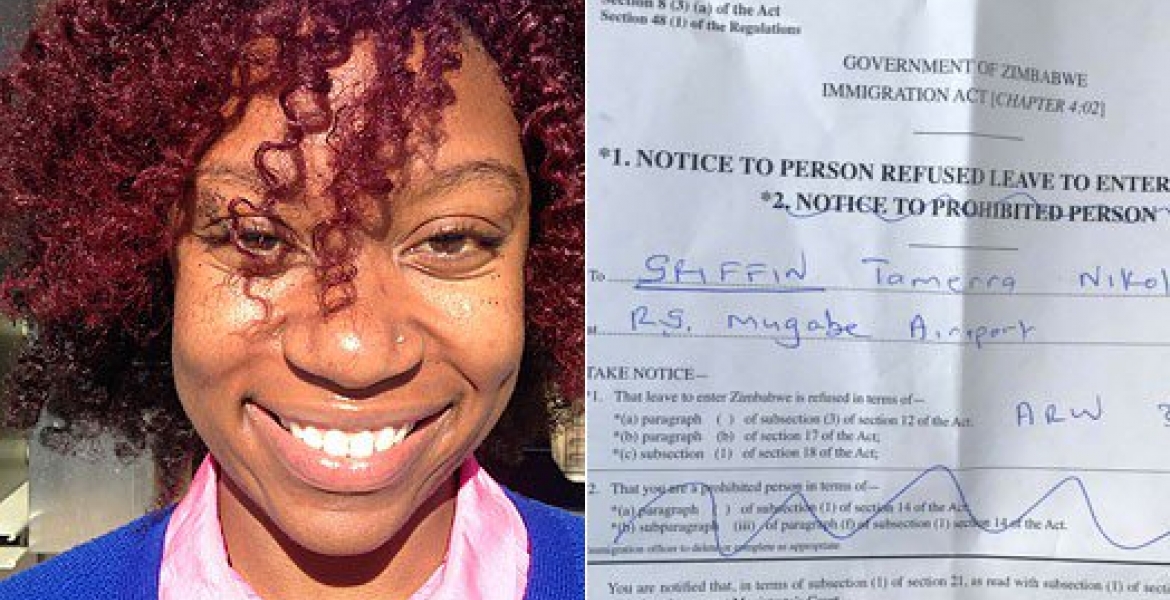 Section 8 (3) (a) of the Act
Section 48 (1) of the Regulations
GOVERNMENT OF ZIMBABWE
IMMIGRATION ACT [CHAPTER 4:02]
*1. NOTICE TO PERSON REFUSED LEAVE TO ENTER
*2. NOTICE TO PROHIBITED PERSON
To GRIFFIN Tamerra Nikol
at R.G. Mugabe Airport
TAKE NOTICE—
*1. That leave to enter Zimbabwe is refused in terms of—
*(a) paragraph ( ) of subsection (3) of section 12 of the Act.
*(b) paragraph (b) of section 17 of the Act;
*(c) subsection (1) of section 18 of the Act;
ARW 3
2. That you are a prohibited person in terms of—
*(a) paragraph ( ) of subsection (1) of section 14 of the Act,
*(b) subparagraph (iii) of paragraph (f) of subsection (1) section 14 of the Act.
immigration officer to delete or complete as appropriate
You are notified that, in terms of subsection (1) of section 21, as read with subsection (1) of